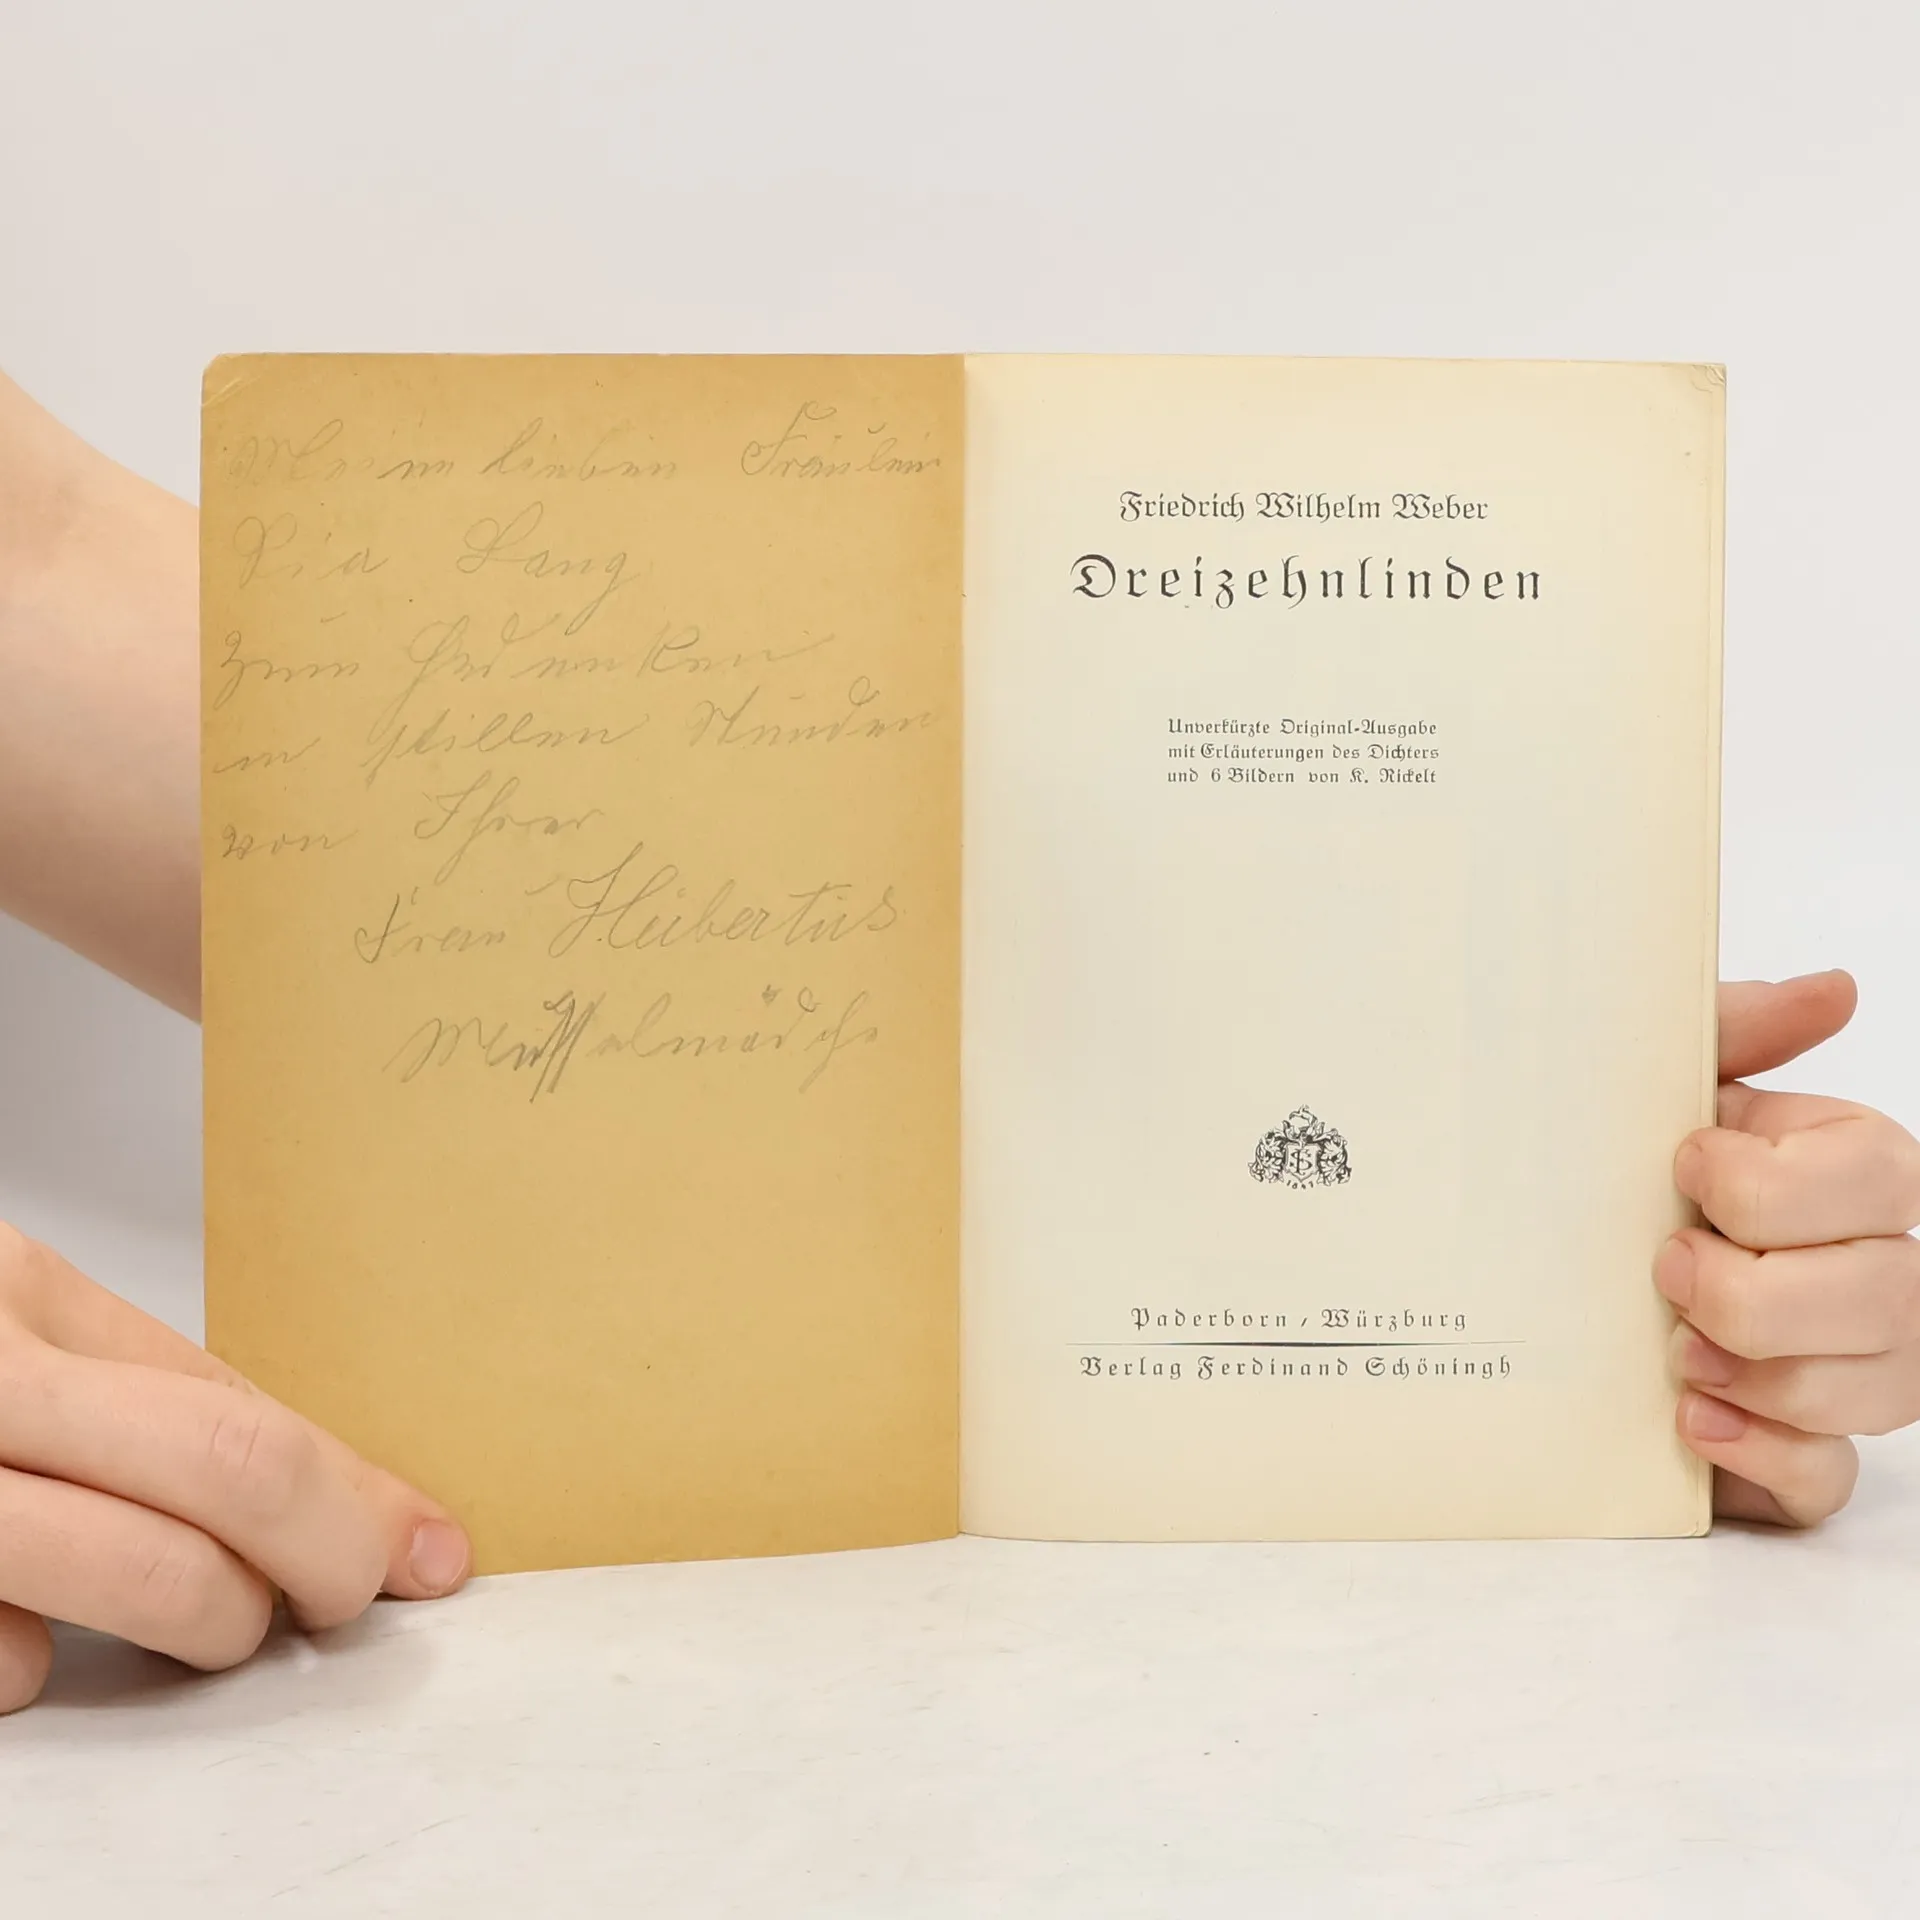 Meinem lieben Fräulein
Pia Lang
zum Gedenken
in stillen Stunden
von Ihrer
Frau Hubertus
Friedrich Wilhelm Weber
Dreizehnlinden
Unverkürzte Original-Ausgabe
mit Erläuterungen des Dichters
und 6 Bildern von K. Rickelt
1847
Paderborn / Würzburg
Verlag Ferdinand Schöningh